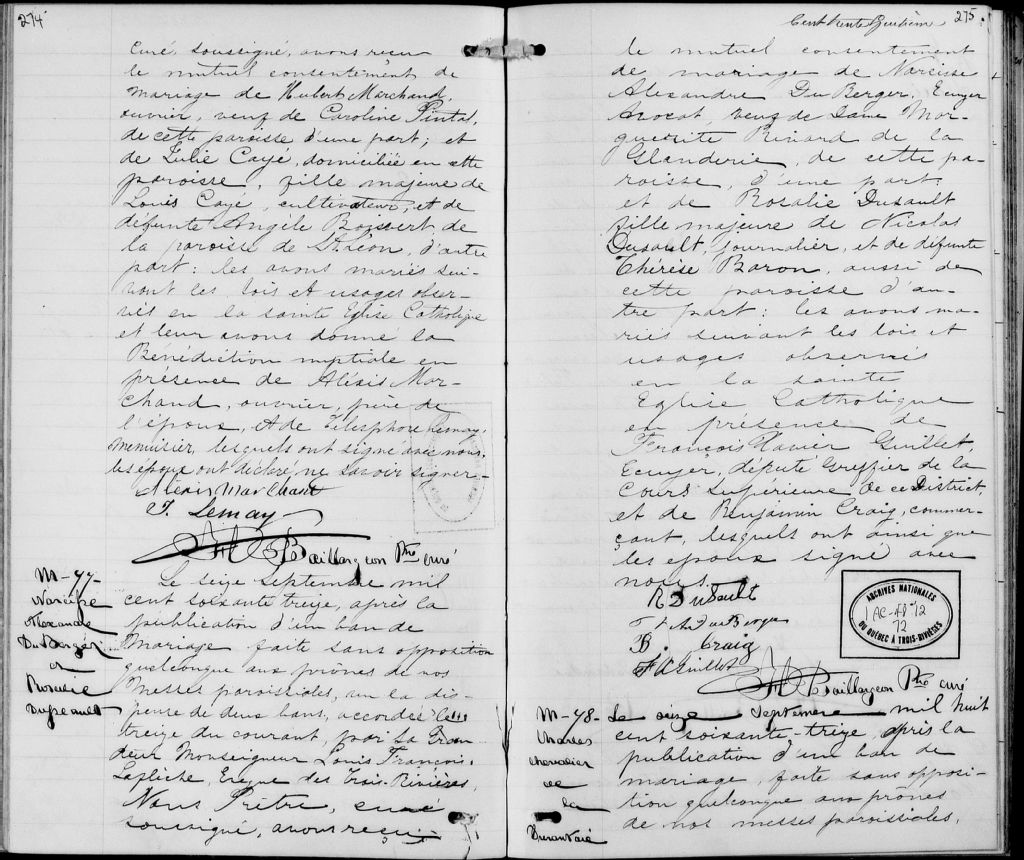 274
curé, soussigné, avons reçu
le mutuel consentement de
mariage de Hubert Marchand,
ouvrier, veuf de Caroline Pintal,
de cette paroisse d'une part; et
de Julie Cayé, domiciliée en cette
paroisse, fille majeure de
Louis Cayé, cultivateur, et de
défunte Angèle Boisvert, de
la paroisse de St Léon, d'autre
part: les avons mariés sui-
vant les lois et usages obser-
vés en la sainte Eglise Catholique
et leur avons donné la
Bénédiction nuptiale en
présence de Aléxis Mar-
chand, ouvrier, père de
l'époux, et de Télésphore Lemay,
menuisier, lesquels ont signé avec nous.
les époux ont déclaré ne savoir signer.
Alexis Marchand
T. Lemay
Baillargeon Ptre curé
M-77-
Narcisse
Alexandre
DuBerger
et
Rosalie
Dusseault
Le seize septembre mil
cent soixante treize, après la
publication d'un ban de
mariage faite sans opposition
quelconque aux prônes de nos
messes paroissiales, vu la dis-
pense de deux bans, accordée le
treize du courant, par Sa Gran
deur Monseigneur Louis François
Laflèche, Evêque des Trois-Rivières,
Nous Prêtre, curé
soussigné, avons reçu
Cent trente 275.
le mutuel consentement
de mariage de Narcisse
Alexandre DuBerger, Ecuyer
Avocat, veuf de Dame Mar-
guerite Rinard de la
Glanderie, de cette pa-
roisse, d'une part,
et de Rosalie Dusault
fille majeure de Nicolas
Dusault, journalier, et de défunte
Thérèse Baron, aussi de
cette paroisse d'au-
tre part: les avons ma-
riés suivant les lois et
usages observés
en la sainte
Eglise Catholique
en présence de
François Xavier Guillet,
Ecuyer, député Greffier de la
Cours Supérieure de ce District,
et de Benjamin Craig, commer-
çant, lesquels ont ainsi que
les époux signé avec
nous.
R Dusault
DuBerger
B. Craig
Guillet
Baillargeon Ptre curé
ARCHIVES NATIONALES
DU QUÉBEC À TROIS-RIVIÈRES
72
M-78-
Charles
chevalier
de
la
Durantaie
Le seize septembre mil huit
cent soixante-treize, après la
publication d'un ban de
mariage, faite sans opposi-
tion quelconque aux prônes
de nos messes paroissiales,